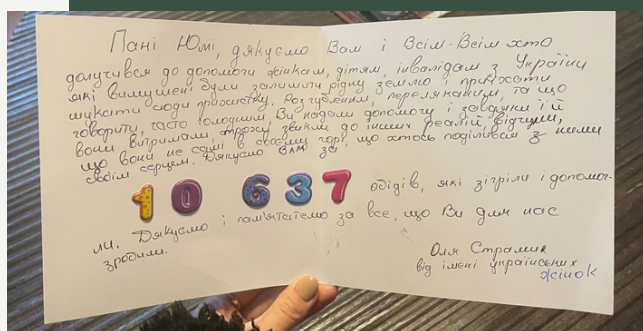 Пані Юмі, дякуємо Вам і Всім-Всім хто
долучився до допомоги жінкам, дітям, інвалідам з України
які вимушені були залишити рідну землю і приїхати
шукати сюди прихистку. Розгубленим, переляканим, та що
говорити, часто голодним Ви надали допомогу і завдяки їй
вони витримали, трохи звикли до інших реалій, відчули,
що вони не самі в своєму горі, що хтось поділився з ними
своїм серцем. Дякуємо ВАМ за
10 637 обідів, які зігріли і допомог-
ли. Дякуємо і пам'ятаємо за все, що Ви для нас
зробили.
Оля Страмик
від імені українських
жінок